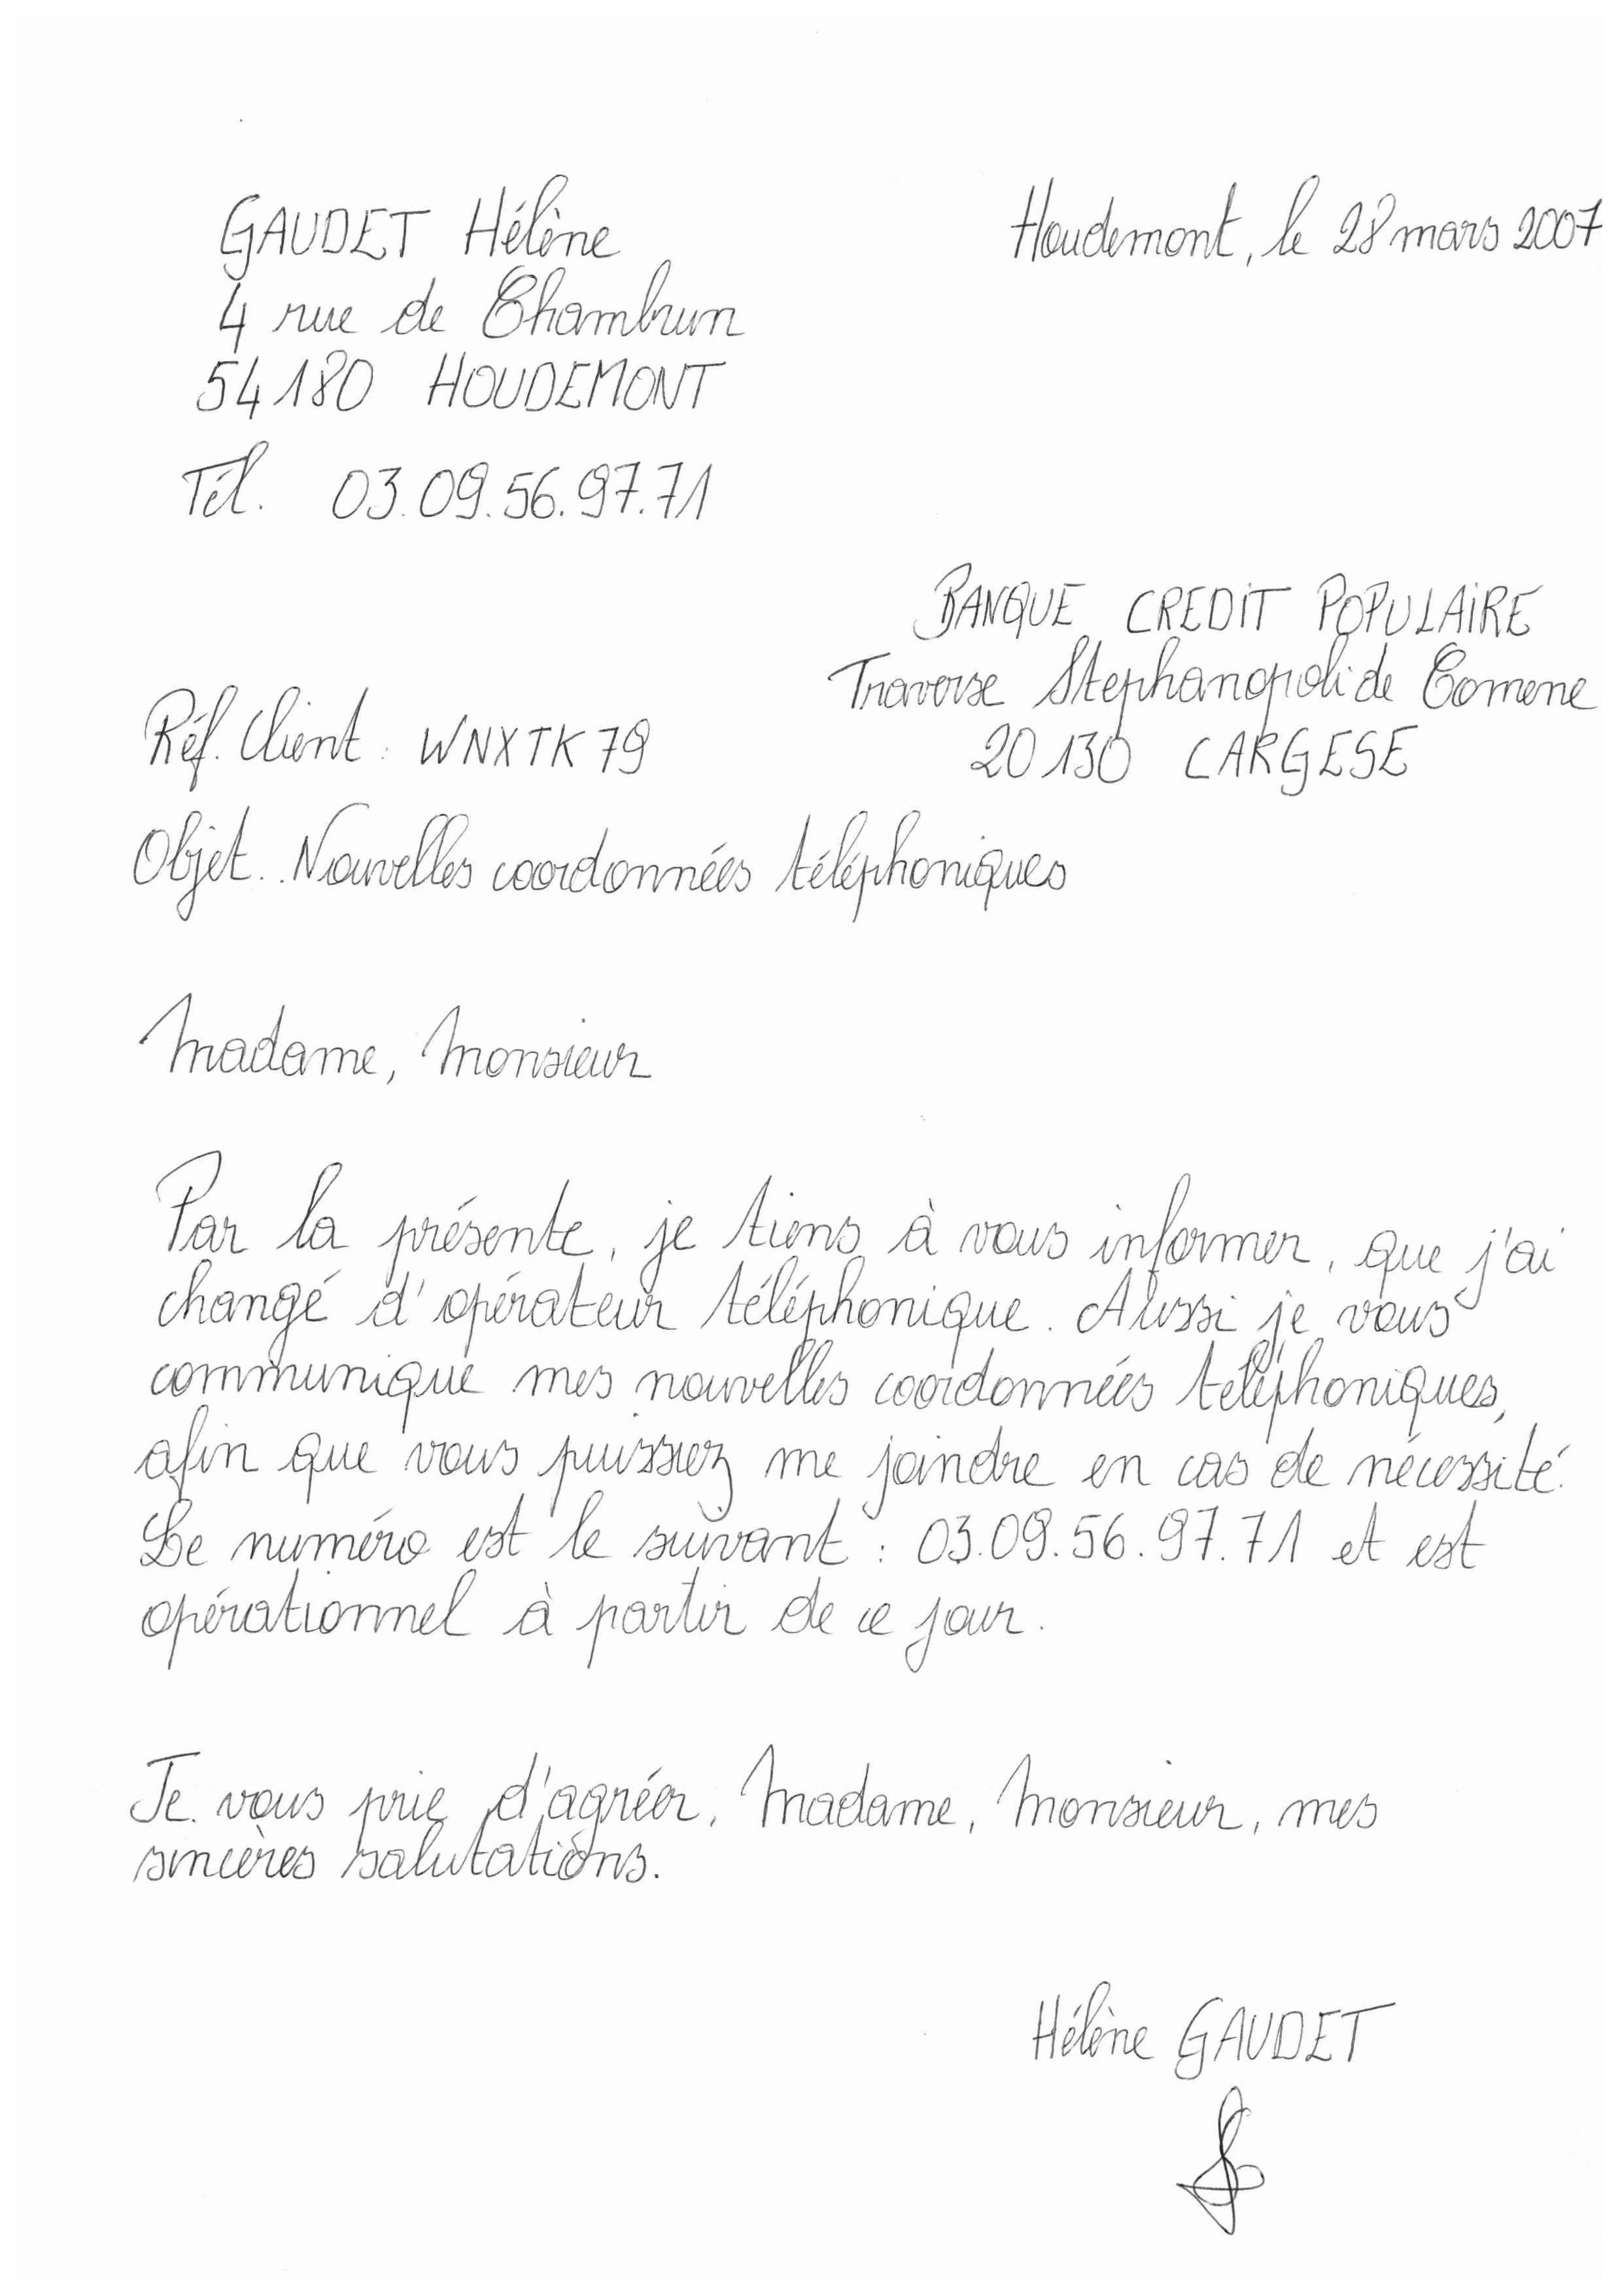 GAUDET Hélène
Houdemont, le 28 mars 2007
4 rue de Chambrun
54180 HOUDEMONT
Tél. 03.09.56.97.71
BANQUE CREDIT POPULAIRE
Traverse Stephanopoli de Comene
20130 CARGESE
Réf. Client : WNXTK79
Objet : Nouvelles coordonnées téléphoniques
Madame, Monsieur
Par la présente, je tiens à vous informer, que j'ai
changé d'opérateur téléphonique. Aussi je vous
communique mes nouvelles coordonnées téléphoniques,
afin que vous puissiez me joindre en cas de nécessité.
Le numéro est le suivant : 03.09.56.97.71 et est
opérationnel à partir de ce jour.
Je vous prie d'agréer, Madame, Monsieur, mes
sincères salutations.
Hélène GAUDET